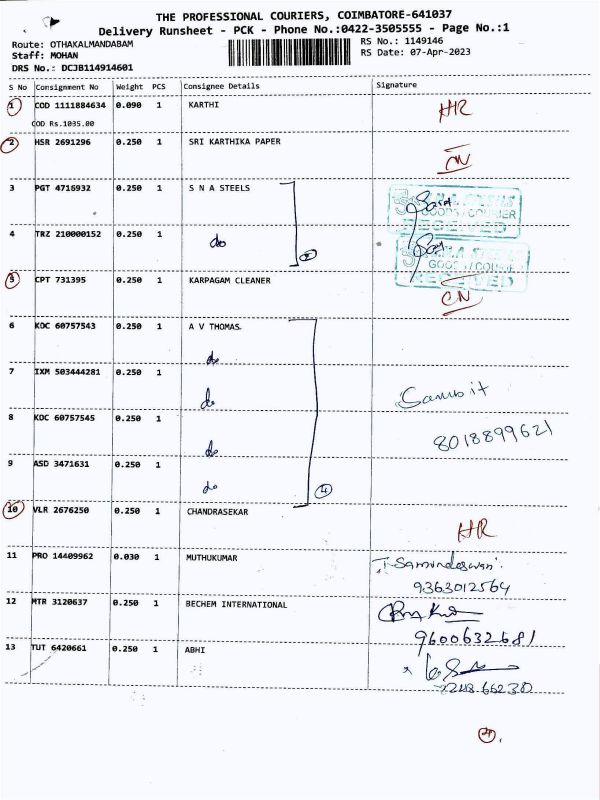 THE PROFESSIONAL COURIERS, COIMBATORE-641037
Delivery Runsheet - PCK - Phone No.:0422-3505555 - Page No.:1
Route: OTHAKALMANDABAM
RS No.: 1149146
Staff: MOHAN
RS Date: 07-Apr-2023
DRS No.: DCJB114914601
S No Consignment No Weight PCS Consignee Details Signature
1 COD 1111884634 0.090 1 KARTHI HR
COD Rs.1035.00
2 HSR 2691296 0.250 1 SRI KARTHIKA PAPER CN
3 PGT 4716932 0.250 1 S N A STEELS
GOODS / COURIER
RECEIVED
4 TRZ 210000152 0.250 1 do 2
GOODS / COURIER
RECEIVED
5 CPT 731395 0.250 1 KARPAGAM CLEANER CN
6 KDC 60757543 0.250 1 A V THOMAS
do
7 IXM 503444281 0.250 1 do
8 KDC 60757545 0.250 1 do 8018899621
9 ASD 3471631 0.250 1 do 4
10 VLR 2676250 0.250 1 CHANDRASEKAR HR
11 PRO 14409962 0.030 1 MUTHUKUMAR
9363012564
12 MTR 3120637 0.250 1 BECHEM INTERNATIONAL
9600632681
13 TUT 6420661 0.250 1 ABHI